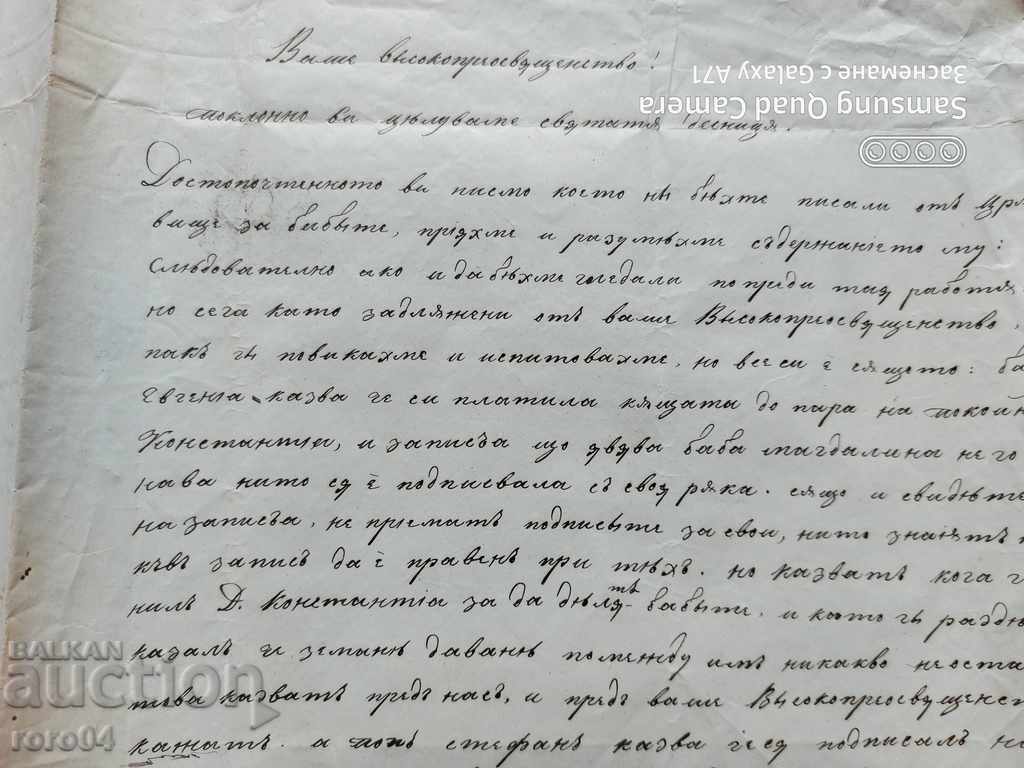 Ваше высокопреосвященство!
поклонно ви цѣлуваме святатя десниця.
Достопочтенното ви писмо което нѣ бѣхте писали отъ Цря
вище за бабыте, пріяхме и разумѣхме съдержаніето му:
Слѣдователно ако и да бѣхме гледали по преди тая работя
но сега като задляжени отъ ваше Высокопреосвященство,
пакъ гы повикахме и испитовахме, но все си е сящето: ба
Евгенія казва че си платила кящата до пара на покойн
Константія, и записъа що явява баба Магдалина не го
нава нито ся е подписвала съ своя ряка. сящо и свидѣте
на записъа, не пріематъ подписыте за свои, нито знаятъ
къвъ записъ да е правенъ при тѣхъ. но казватъ кога
нилъ Д. Константіа за да дѣлятъ бабыте. и като гы раздѣ
казалъ че земанѣ даванѣ помежду имъ никакво не оста
това казватъ предъ насъ, и предъ ваше Высокопреосвященст
кажатъ. а попъ Стефанъ казва че ся подписалъ на
Samsung Quad Camera
Заснемане с Galaxy A71
BALKAN
auction
roro04